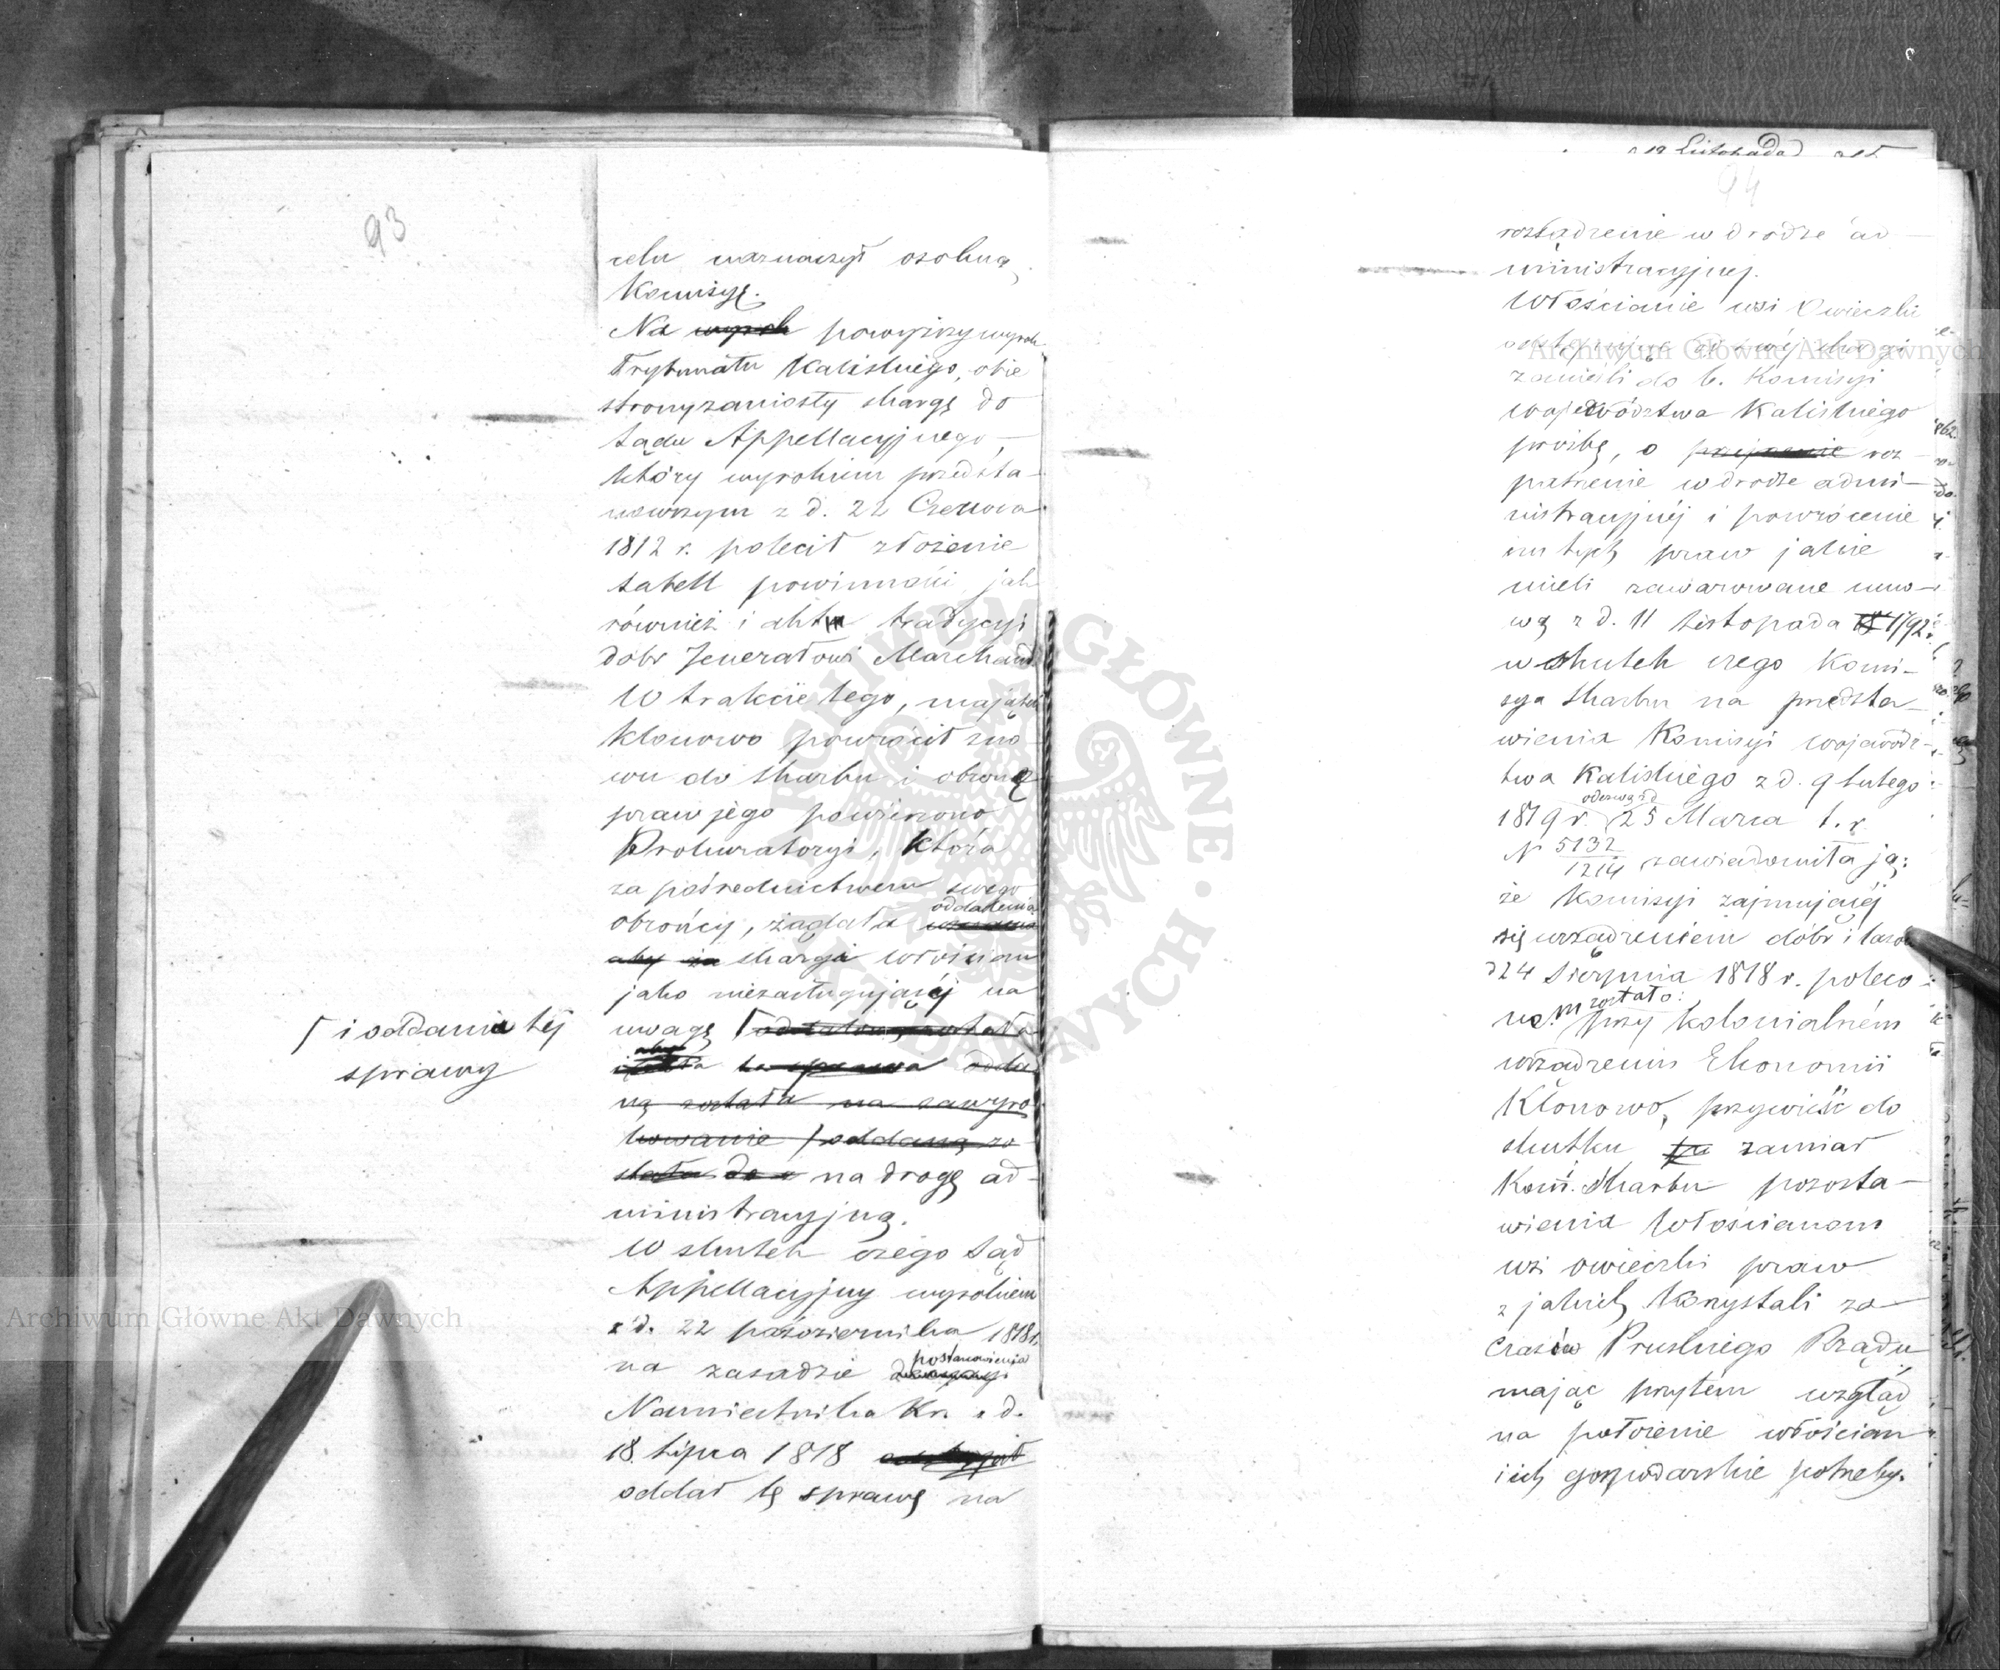 93
celu naznaczył osobną
Komisyę.
Na wyrok powyższy wyrok
Trybunału Kaliskiego, obie
strony zaniosły skargę do
Sądu Appellacyjnego,
który wyrokiem przedsta-
nowczym z d. 22 Czerwca
1812 r. polecił złożenie
tabell powinności jak
również i aktu tradycyi
dóbr Jenerałowi Marchand
W trakcie tego, majątek
Klonowo powrócił zno-
wu do skarbu i obronę
praw jego powierzono
Prokuratoryi, która
za pośrednictwem swego
oddalenia
obrońcy, żądała
aby za skarga włościan
jako niezasługującéj na
uwagę oddaloną została
i oddania téj
sprawy
aby
ta sprawa odda
ną została na zawyro
kowanie oddaną zo-
stała do na drogę ad-
ministracyjną.
W skutek czego Sąd
Appellacyjny wyrokiem
z d. 22 października 1818 r.
postanowienia
na zasadzie
Namiestnika Kr. z d.
18 Lipca 1818
oddał tę sprawę na
19 Listopada
94
rozsądzenie w drodze ad-
ministracyjnej.
Włościanie wsi Owieczki
zanieśli do b. Komisyi
Województwa Kaliskiego
prośbę, o przejrzenie roz-
patrzenie w drodze admi-
nistracyjnéj i powrócenie
im tych praw jakie
mieli zawarowane umo-
wą z d. 11 Listopada 1792 r.
w skutek czego Komi-
sya Skarbu na przedsta-
wienia Komisyi Wojewódz-
twa Kaliskiego z d. 9 Lutego
odezwą z d
1819 r. 25 Marca t. r.
N 5132/1214 zawiadomiła ją:
że Komisyi zajmującéj
się urządzeniem dóbr i lasów
d 24 Sierpnia 1818 r. poleco
zostało:
nem przy kolonialném
urządzeniu Ekonomii
Klonowo, przywieść do
skutku zamiar
Kom. Skarbu pozosta-
wienia Włościanom
wsi Owieczki praw
z jakich korzystali za
czasów Pruskiego Rządu
mając przytém wzgląd
na położenie włościan
i ich gospodarskie potrzeby.
Archiwum Główne Akt Dawnych
Archiwum Główne Akt Dawnych
ARCHIWUM GŁÓWNE AKT DAWNYCH